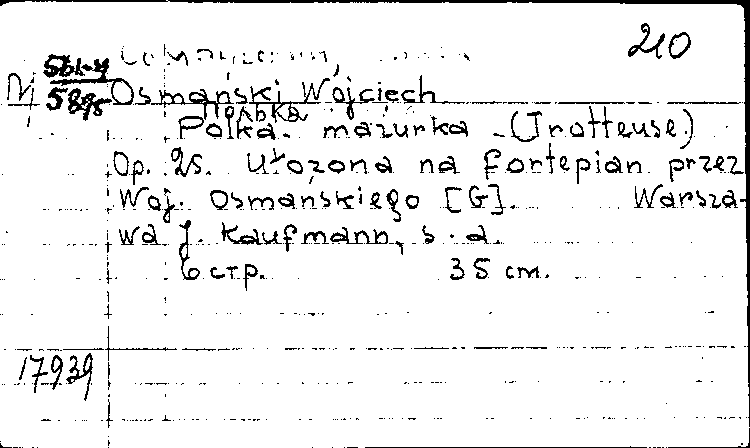 210
Osmański Wojciech
Полька
Polka - mazurka - (Trotteuse)
Op. 25. Ułożona na fortepian przez
Woj. Osmańskiego [G]. Warsza-
wa J. Kaufmann, s. a.
6 стр. 35 cm.
17939